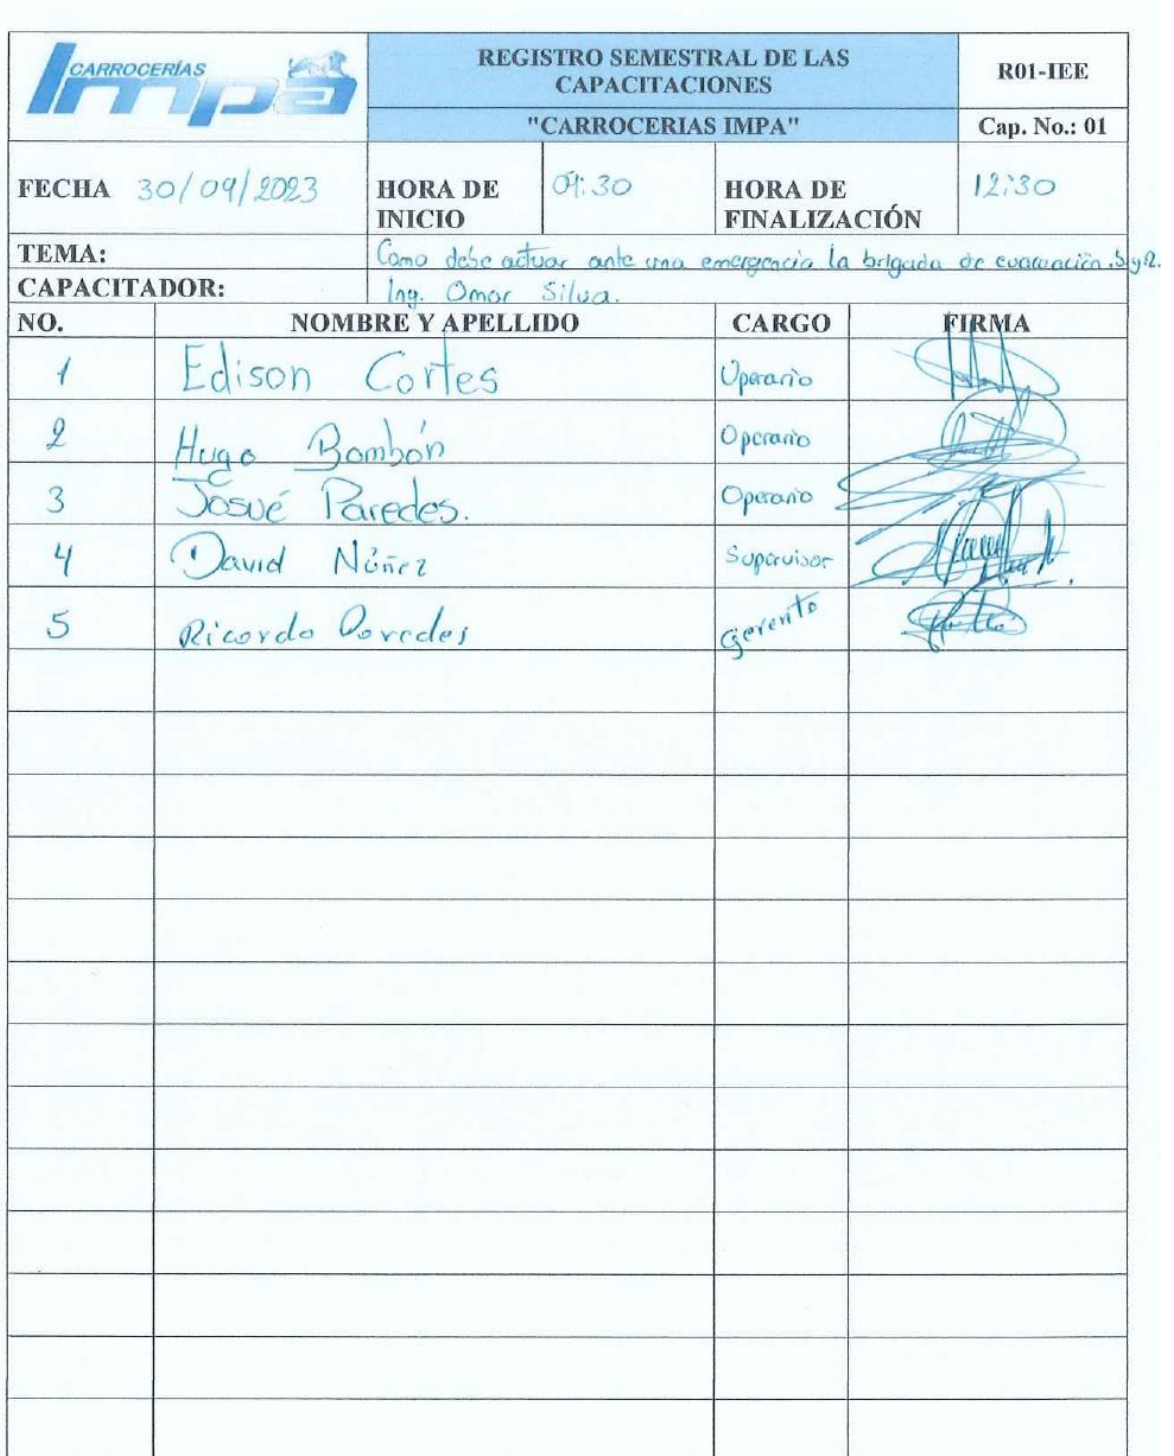 CARROCERÍAS
Impa
REGISTRO SEMESTRAL DE LAS
CAPACITACIONES
R01-IEE
"CARROCERIAS IMPA"
Cap. No.: 01
FECHA 30/09/2023
HORA DE
INICIO
09:30
HORA DE
FINALIZACIÓN
12:30
TEMA: Como debe actuar ante una emergencia la brigada de evacuación, b y r.
CAPACITADOR: Ing. Omar Silva.
NO. NOMBRE Y APELLIDO CARGO FIRMA
1 Edison Cortes Operario
2 Hugo Bombón Operario
3 Josué Paredes. Operario
4 David Núñez Supervisor
5 Ricardo Paredes Gerente